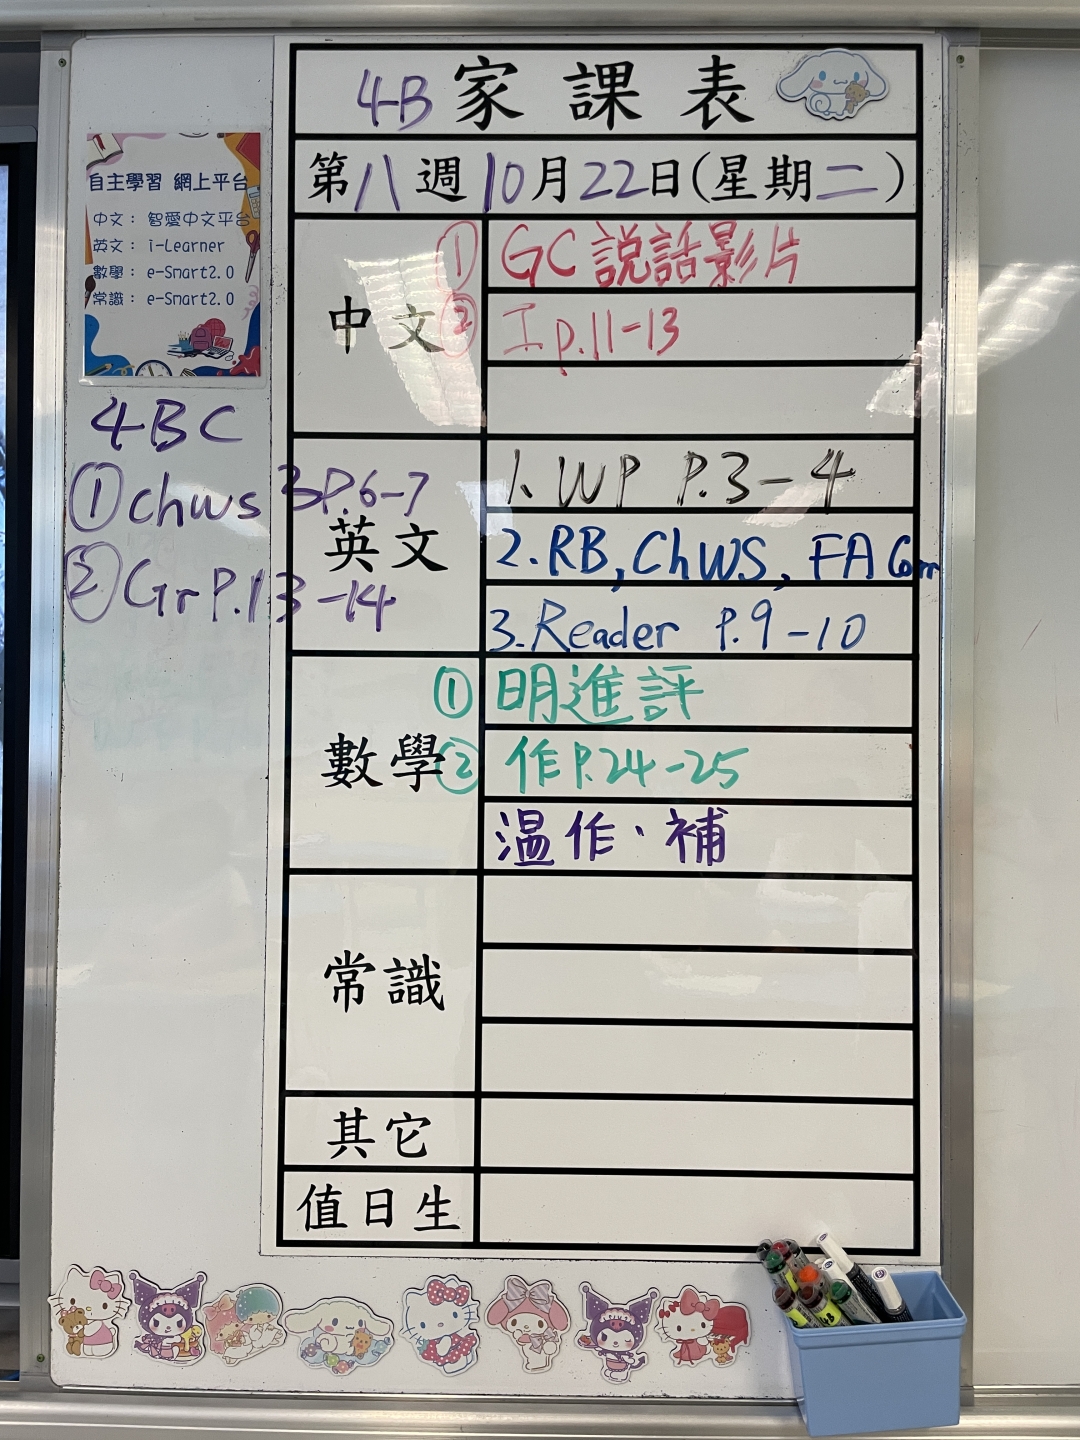 4B家課表
第八週10月22日(星期二)
自主學習 網上平台
中文： 智愛中文平台
英文： i-Learner
數學： e-Smart2.0
常識： e-Smart2.0
中文
① GC說話影片
② 工p.11-13
4BC
① chws 3P.6-7
② Gr P.13-14
英文
1. WP P.3-4
2. RB, ChWS, FA Corr
3. Reader P.9-10
數學
① 明進評
② 作P.24-25
溫作、補
常識
其它
值日生